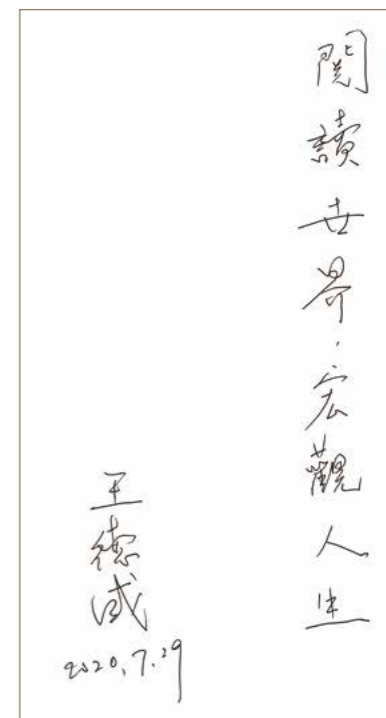 閱讀世界，宏觀人生
王德威
2020.7.29